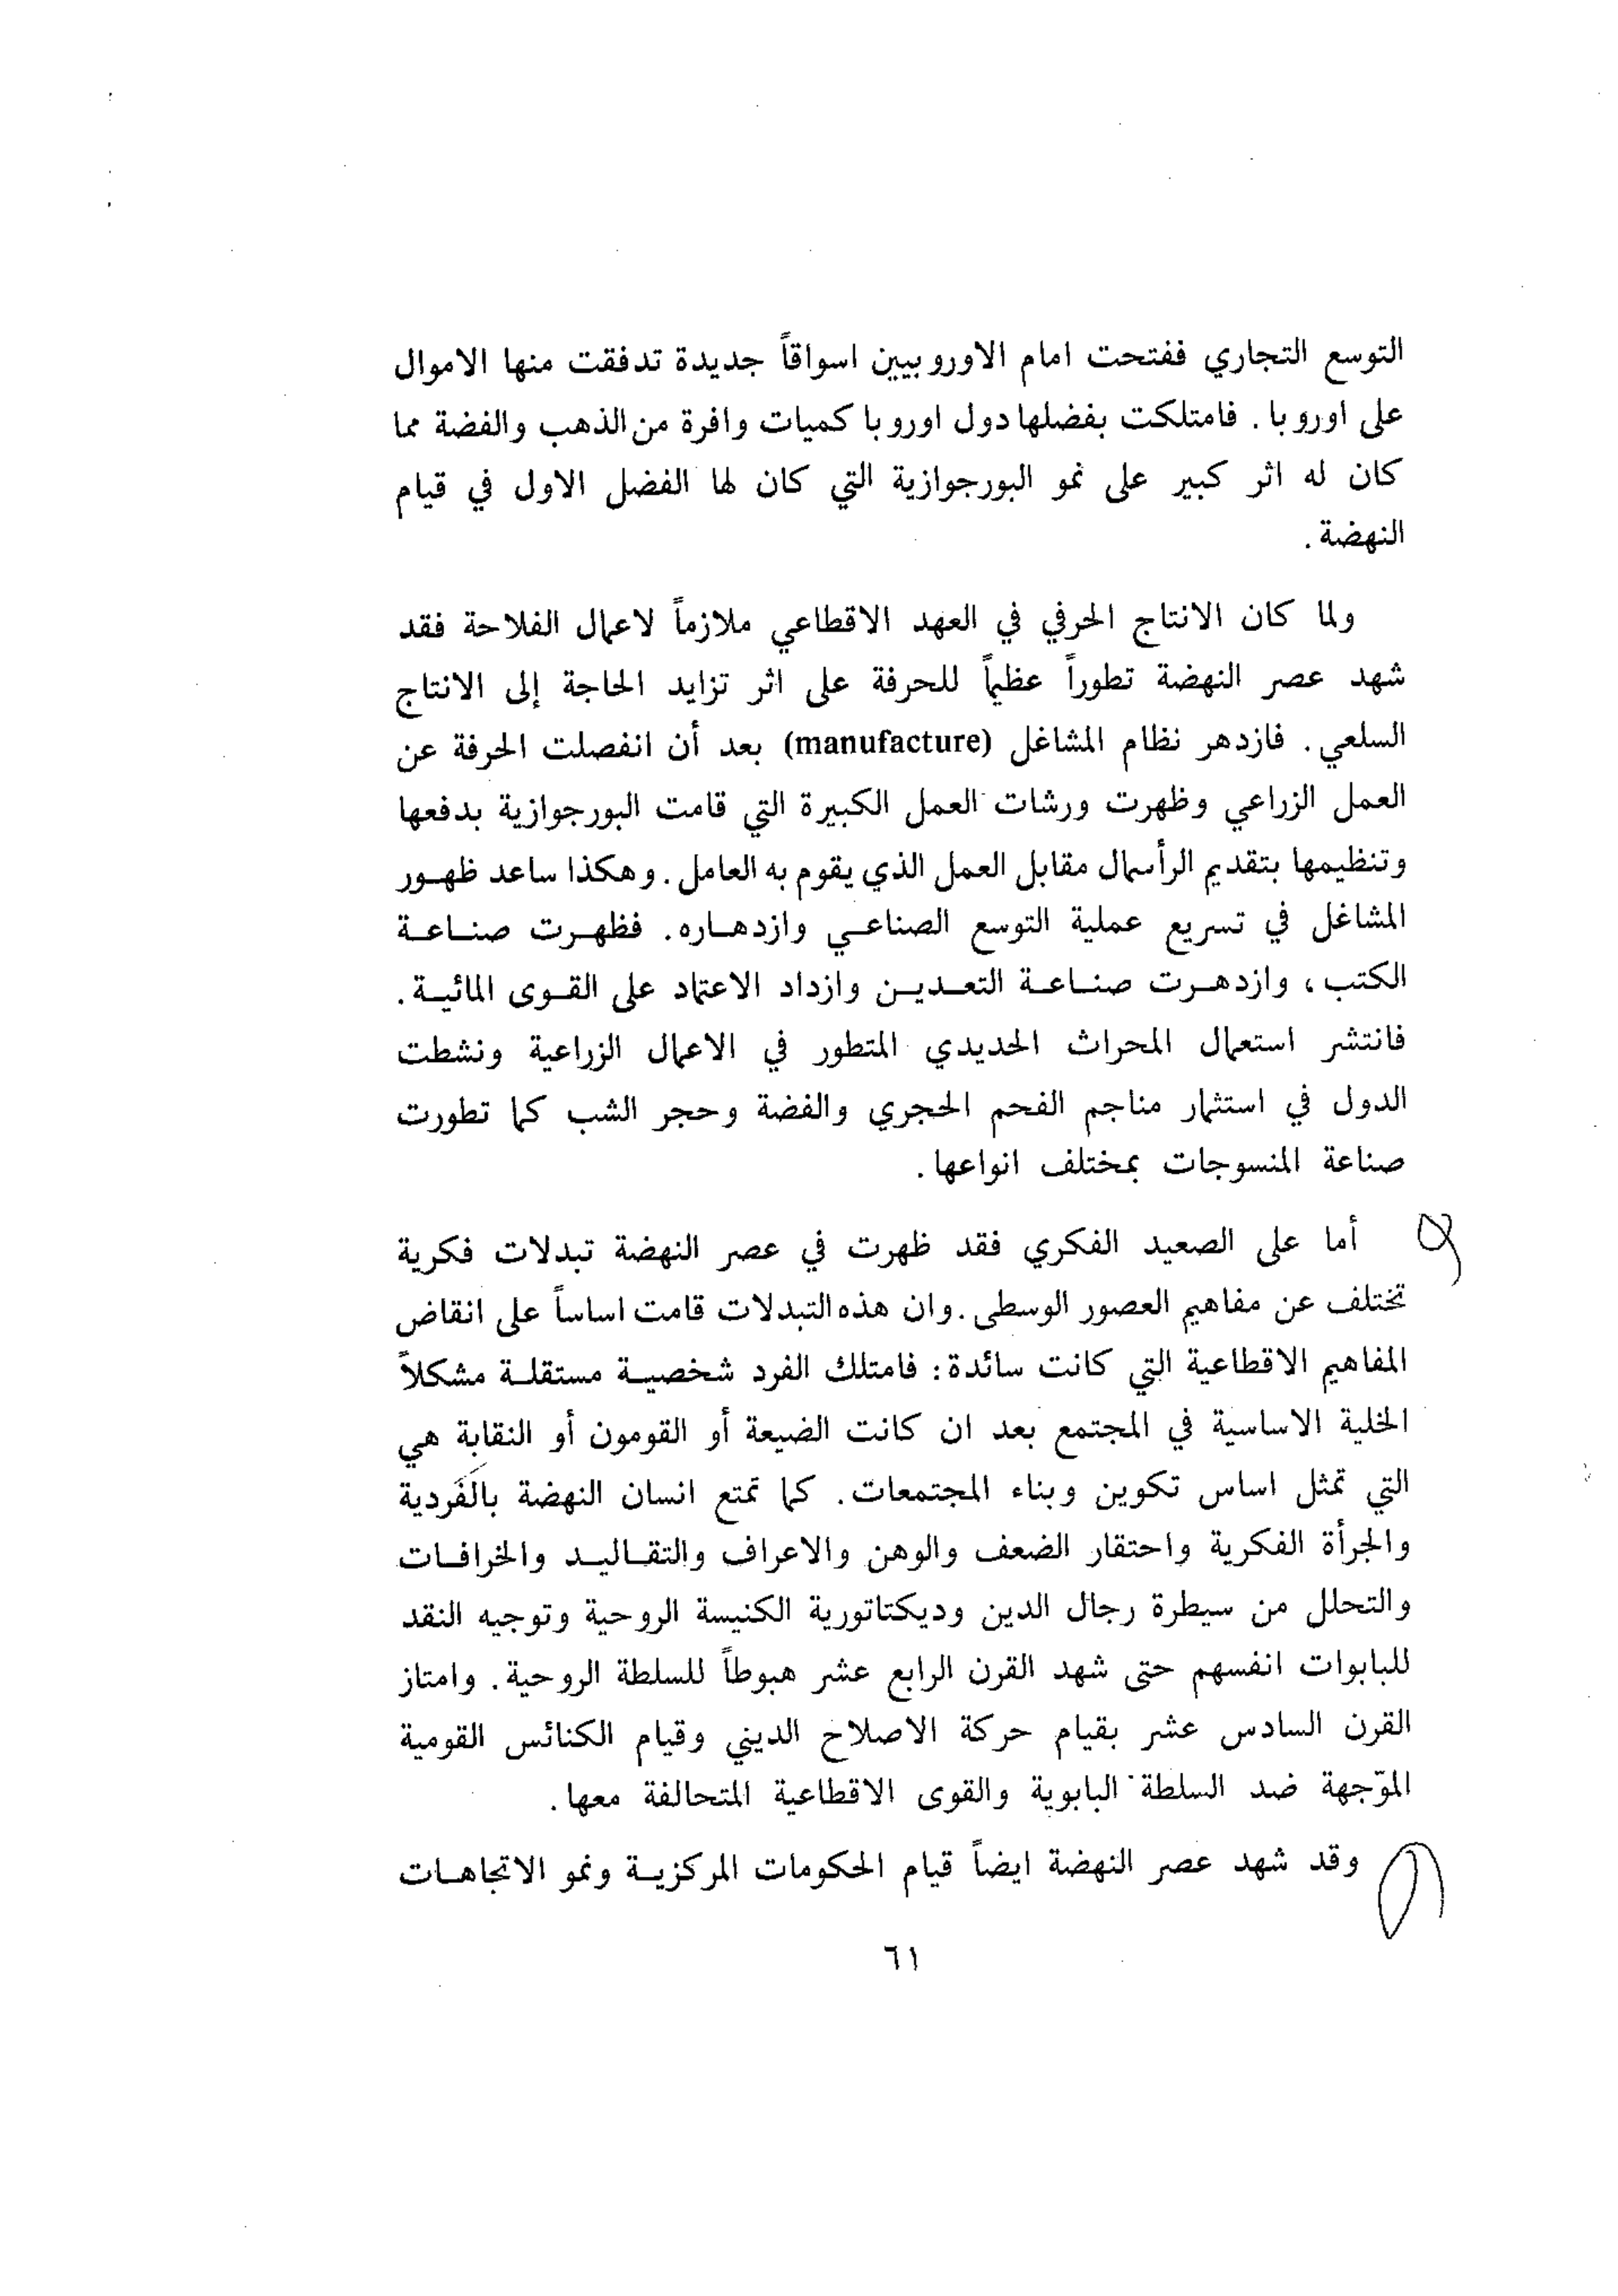 التوسع التجاري ففتحت امام الاوروبيين اسواقاً جديدة تدفقت منها الاموال
على اوروبا. فامتلكت بفضلها دول اوروبا كميات وافرة من الذهب والفضة مما
كان له اثر كبير على نمو البورجوازية التي كان لها الفضل الاول في قيام
النهضة.
ولما كان الانتاج الحرفي في العهد الاقطاعي ملازماً لاعمال الفلاحة فقد
شهد عصر النهضة تطوراً عظيماً للحرفة على اثر تزايد الحاجة إلى الانتاج
السلعي. فازدهر نظام المشاغل (manufacture) بعد أن انفصلت الحرفة عن
العمل الزراعي وظهرت ورشات العمل الكبيرة التي قامت البورجوازية بدفعها
وتنظيمها بتقديم الرأسمال مقابل العمل الذي يقوم به العامل. وهكذا ساعد ظهور
المشاغل في تسريع عملية التوسع الصناعي وازدهاره. فظهرت صناعة
الكتب، وازدهرت صناعة التعدين وازداد الاعتماد على القوى المائية.
فانتشر استعمال المحراث الحديدي المتطور في الاعمال الزراعية ونشطت
الدول في استثمار مناجم الفحم الحجري والفضة وحجر الشب كما تطورت
صناعة المنسوجات بمختلف انواعها.
أما على الصعيد الفكري فقد ظهرت في عصر النهضة تبدلات فكرية
تختلف عن مفاهيم العصور الوسطى. وان هذه التبدلات قامت اساساً على انقاض
المفاهيم الاقطاعية التي كانت سائدة: فامتلك الفرد شخصية مستقلة مشكلاً
الخلية الاساسية في المجتمع بعد ان كانت الضيعة أو القومون أو النقابة هي
التي تمثل اساس تكوين وبناء المجتمعات. كما تمتع انسان النهضة بالفردية
والجرأة الفكرية واحتقار الضعف والوهن والاعراف والتقاليد والخرافات
والتحلل من سيطرة رجال الدين وديكتاتورية الكنيسة الروحية وتوجيه النقد
للبابوات انفسهم حتى شهد القرن الرابع عشر هبوطاً للسلطة الروحية. وامتاز
القرن السادس عشر بقيام حركة الاصلاح الديني وقيام الكنائس القومية
الموّجهة ضد السلطة البابوية والقوى الاقطاعية المتحالفة معها.
وقد شهد عصر النهضة ايضاً قيام الحكومات المركزية ونمو الاتجاهات
٦١